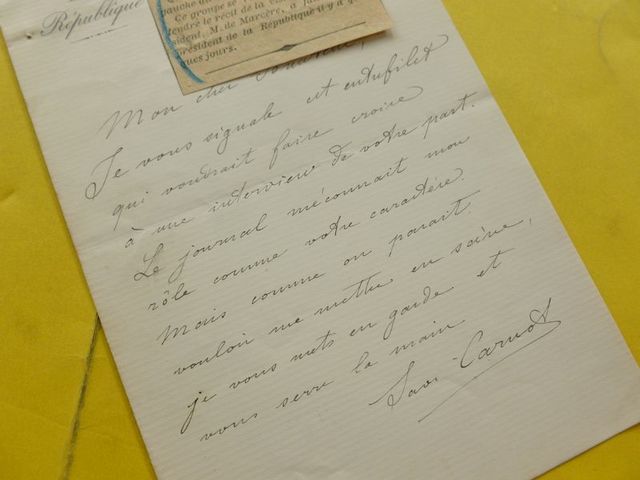 République
gauche du
Ce groupe se
tendre le récit de la
sident, M. de Marcère, a
président de la République il y a q
ques jours.
Mon cher
Je vous signale cet entrefilet
qui voudrait faire croire
à une interview de votre part.
Le journal méconnait mon
rôle comme votre caractère.
Mais comme on parait
vouloir me mettre en scène,
je vous mets en garde et
vous serre la main
Sadi-Carnot